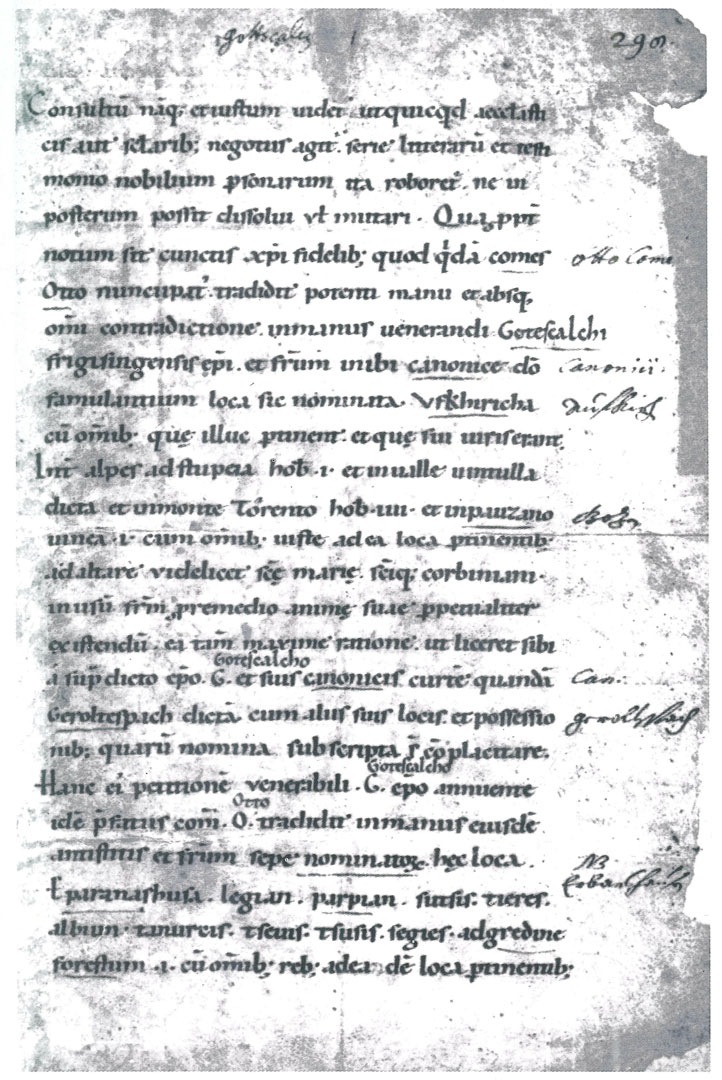 gottscalc 1 290.
Consultū naq; et iustum uidet᷑ ut quicqd aecclasti
cis aut sclarib; negotiis agit᷑ serie litterarū et testi
monio nobilium psonarum ita roboret᷑. ne in
posterum possit dissolui vl mutari. Quapp̄t
notum sit cunctis xpi fidelib; quod qdā comes otto Come
Otto nuncupat᷑ tradidit potenti manu et absq;
omi contradictione. inmanus uenerandi Gotescalchi
frigisingensis epi. et frm inibi canonice dō Canonici.
famulantium loca sic nominata. Vfkhiricha
cū omib; quę illuc ptinent. et quę sui iuris erant.
Int alpes ad stupeia hob. i. et in ualle
dicta et inmonte Torento hob. iiii. et inpauzano
uinea. i. cum omib; iuste ad ea loca ptinentib;
ad altare videlicet scę marię. sciq; corbiniani.
in usū frm. premedio animę suae ppetualiter
existendū. ea tam maxime ratione. ut liceret sibi
Gotescalcho
a sup dicto epo. G. et suis canonicis curtē quandā Can.
Geroltespach dictā cum aliis suis locis. et possessio gerolspach
nib; quarū nomina subscripta s cōplacitare.
Gotescalcho
Hanc ei petitionē venerabili. G. epo annuente
Otto
idē pfatus com. O. tradidit inmanus eiusdē
antistitis et frm sepe nominatoꝝ hęc loca. NB
Eparanashusa. legian. parpian. sutsis. tieres.
albiun. tanureis. tseuis. tsusis. segies. adgredine
forestum .i. cū omib; reb; ad ea dē loca ptinentib;